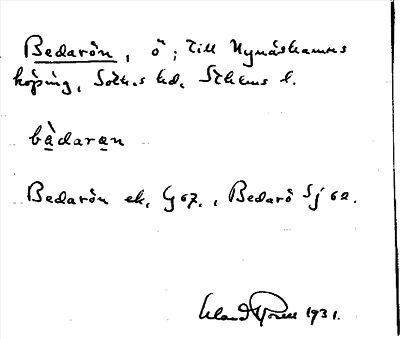 Bedarön, ö; till Nynäshamns
köping, Soth.s hd, Sthlms l.
bàdaran
Bedarön ek. G 67., Bedarö Sj 62.
Erland Rosell 1931.